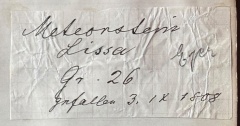 Meteorstein
Lissa
Gr. 26
gefallen 3. IX 1808